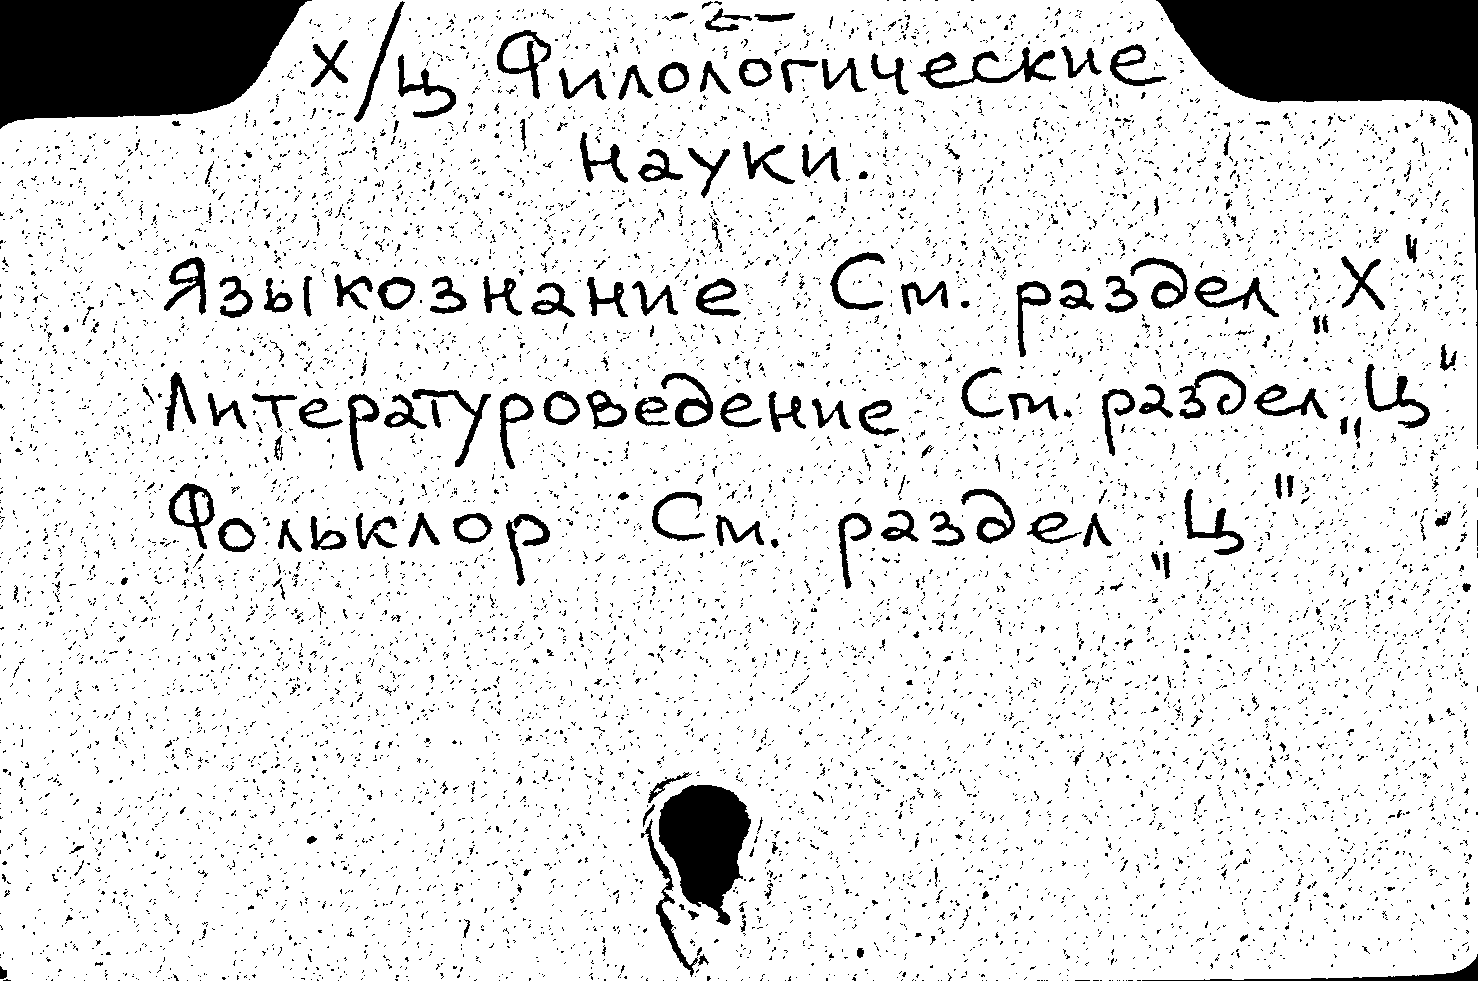 -2-
Х/Ц Филологические
Науки.
Языкознание См. раздел „Х"
Литературоведение См. раздел „Ц"
Фольклор См. раздел „Ц"